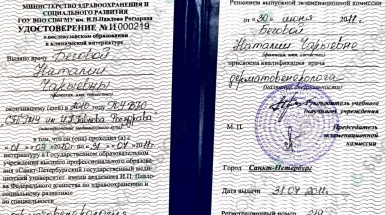 МИНИСТЕРСТВО ЗДРАВООХРАНЕНИЯ И
СОЦИАЛЬНОГО РАЗВИТИЯ
ГОУ ВПО СПбГМУ им. И.П.Павлова Росздрава
УДОСТОВЕРЕНИЕ № И 0000219
о послевузовском образовании
в клинической интернатуре
Выдано врачу Беговой
Наталии
Чарыевны
(фамилия, имя, отчество)
окончившему (ей) в 2010
СПбГМУ им. И.П. Павлова Росздрава,
в том, что он (она) проходил (а) с
интернатуру в Государственном образовательном
учреждении высшего профессионального образова-
ния «Санкт-Петербургский государственный меди-
цинский университет имени академика И.П. Павло-
ва Федерального агентства по здравоохранению и
социальному развитию»
по специальности
Решением выпускной экзаменационной комиссии
от «30» июня 2011 г.
Беговой
Наталии Чарыевне
(фамилия, имя, отчество)
присвоена квалификация врача
дерматовенеролога
(название специальности)
Руководитель учебного
научного учреждения
М. П.
Председатель
экзаменационной
комиссии
Город Санкт-Петербург
Дата выдачи
Регистрационный номер 219